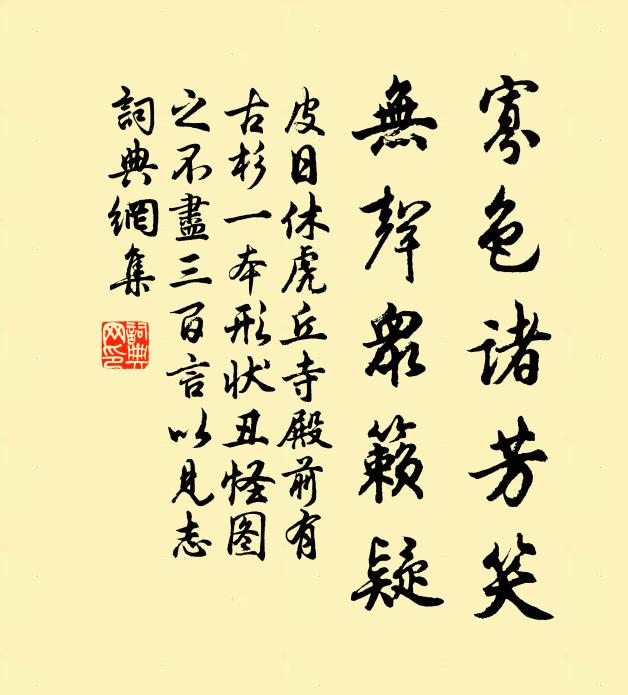 寡色諸芳笑
無聲眾籟疑
皮日休虎丘寺殿前有
古杉一本形狀丑怪圖
之不盡三百言以見志
詞典網集
詞典網印